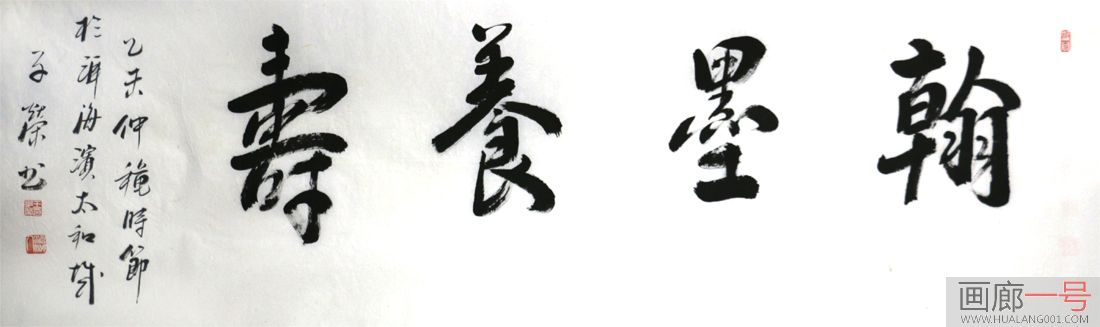 翰墨養壽
乙未仲穐時節
於洱海濱太和城
子榮书
画廊一号
WWW.HUALANG001.COM